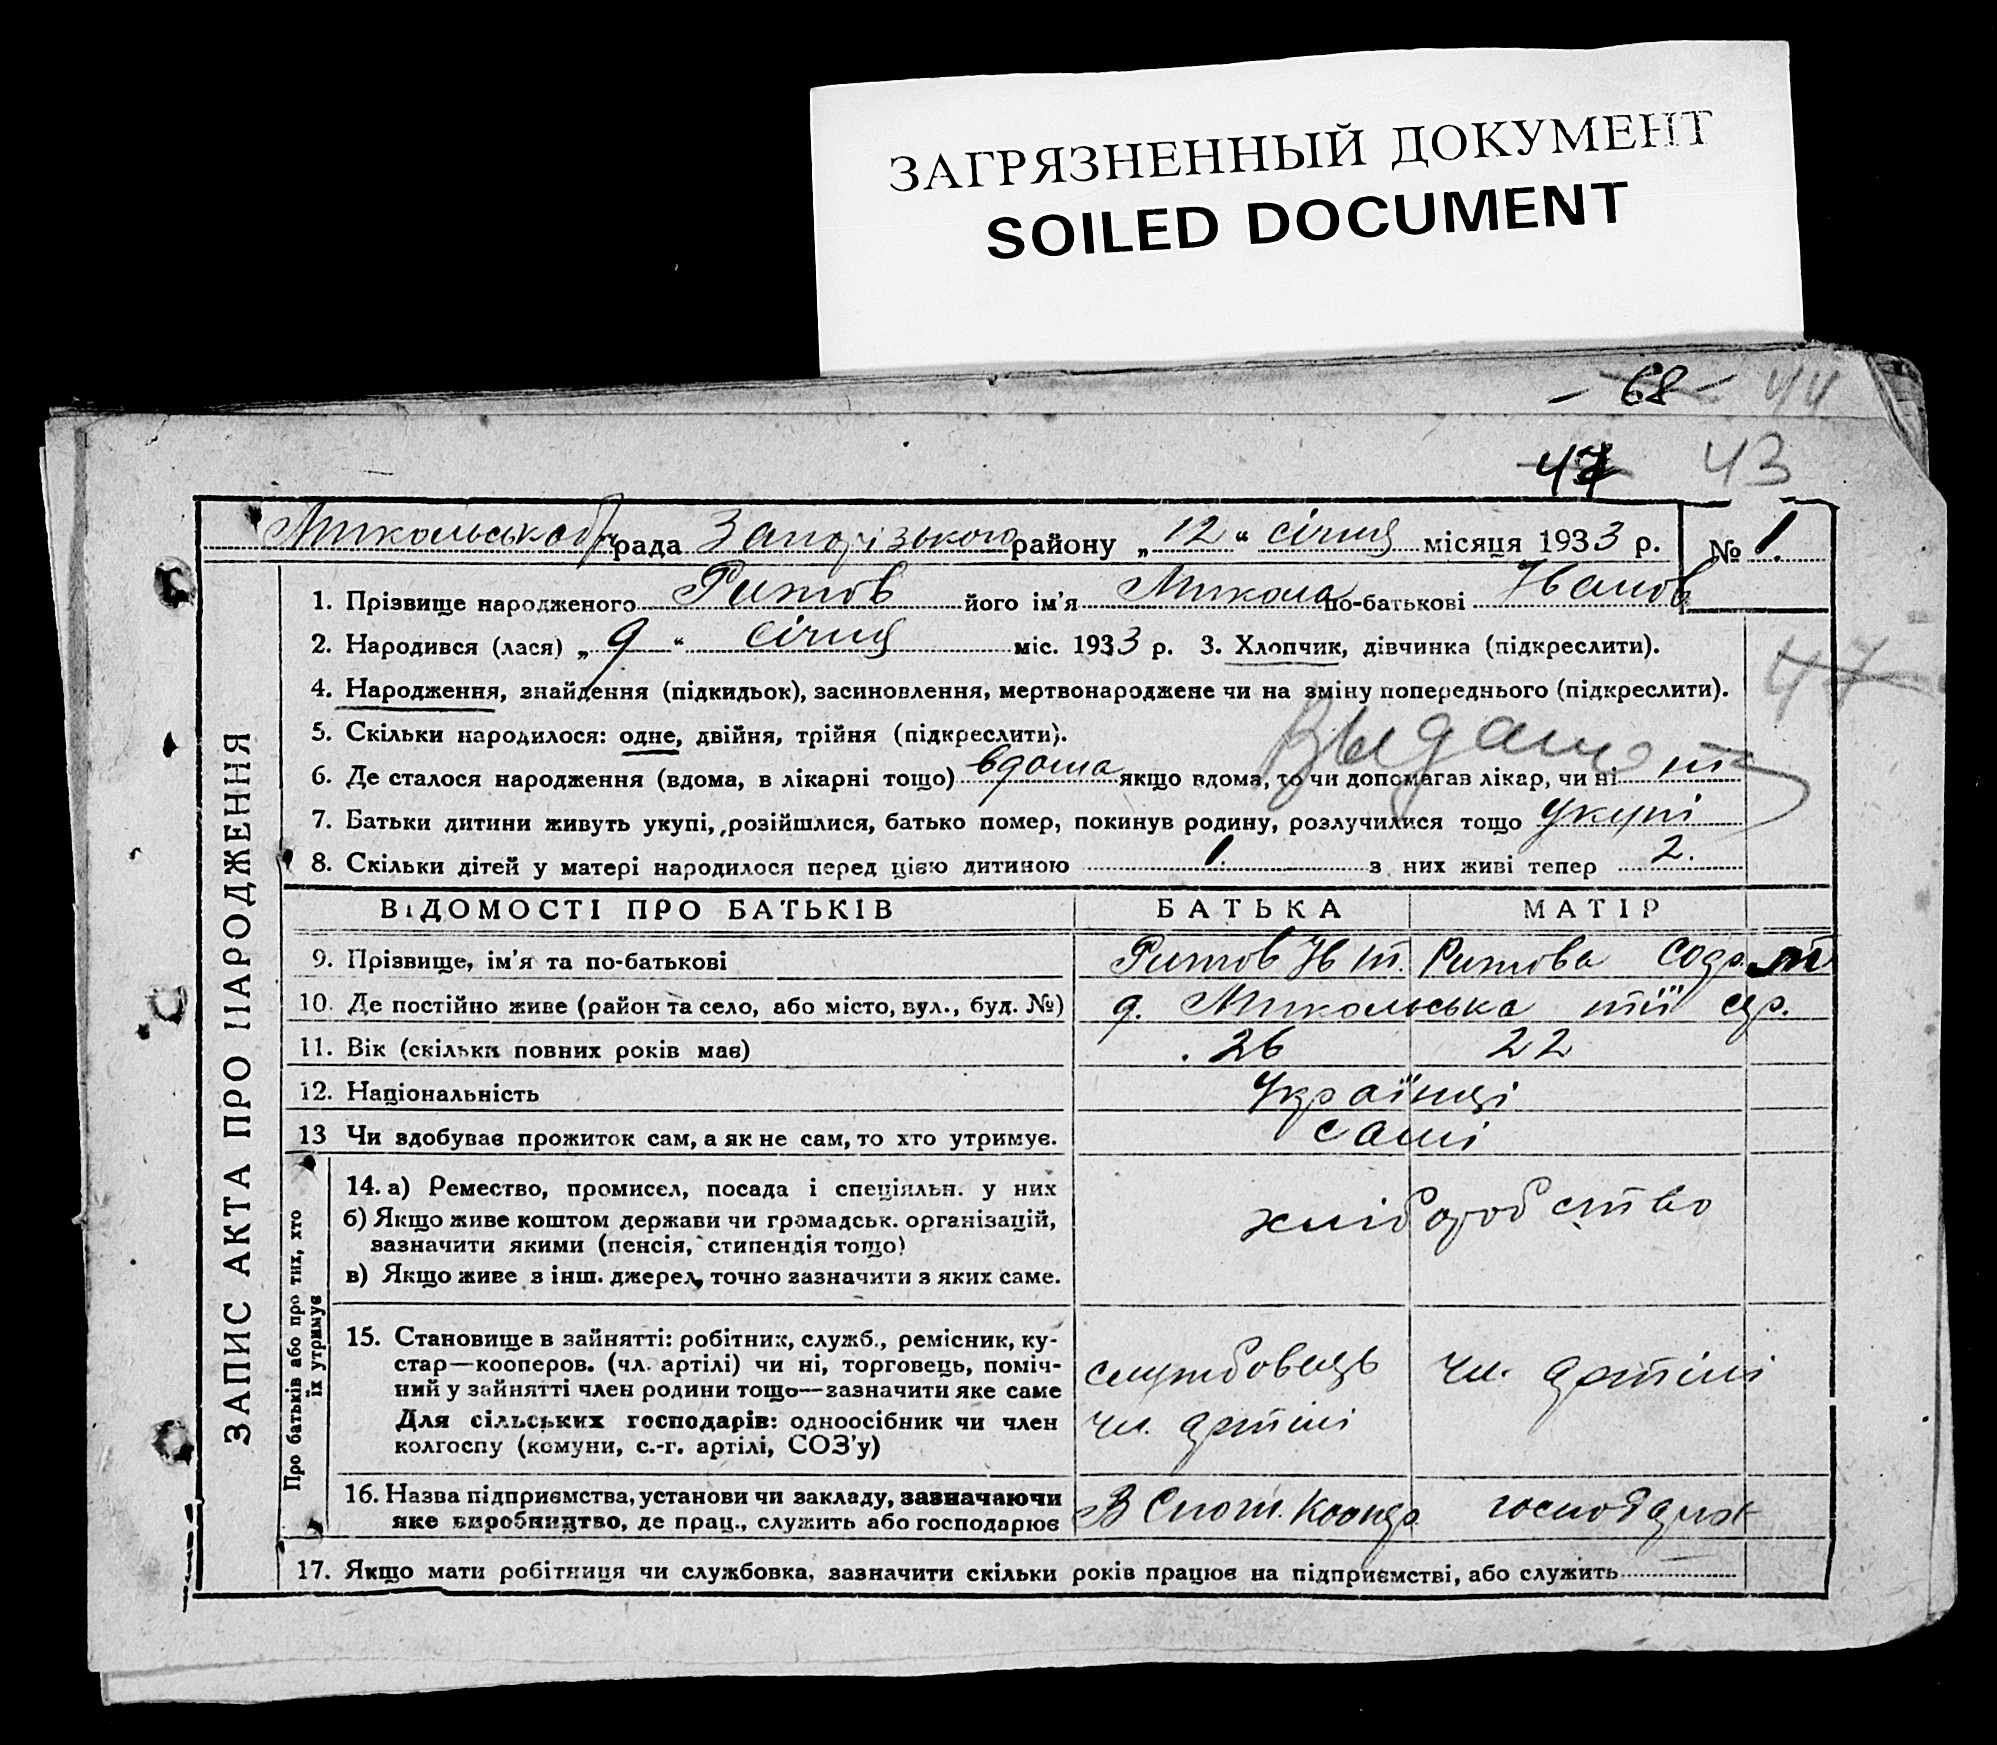 ЗАГРЯЗНЕННЫЙ ДОКУМЕНТ
SOILED DOCUMENT
68 44
47 43
Микольська рада Запорізького району „12“ січня місяця 1933 р. № 1.
1. Прізвище народженого Ритов його ім'я Микола по-батькові Іванов
2. Народився (лася) „9“ січня міс. 1933 р. 3. Хлопчик, дівчинка (підкреслити).
47
4. Народження, знайдення (підкидьок), засиновлення, мертвонароджене чи на зміну попереднього (підкреслити).
5. Скільки народилося: одне, двійня, трійня (підкреслити).
6. Де сталося народження (вдома, в лікарні тощо) вдома якщо вдома, то чи допомагав лікар, чи ні
7. Батьки дитини живуть укупі, розійшлися, батько помер, покинув родину, розлучилися тощо укупі
8. Скільки дітей у матері народилося перед цією дитиною 1. з них живі тепер 2.
ЗАПИС АКТА ПРО НАРОДЖЕННЯ
ВІДОМОСТІ ПРО БАТЬКІВ БАТЬКА МАТІР
9. Прізвище, ім'я та по-батькові Ритов Ритова
10. Де постійно живе (район та село, або місто, вул., буд. №) Микольська тії ср.
11. Вік (скільки повних років має) 26 22
12. Національність Українці
13 Чи здобуває прожиток сам, а як не сам, то хто утримує. самі
Про батьків або про тих, хто
їх утримує
14. а) Ремество, промисел, посада і спеціяльн. у них
б) Якщо живе коштом держави чи громадськ. організацій,
зазначити якими (пенсія, стипендія тощо)
в) Якщо живе з інш. джерел, точно зазначити з яких саме.
хліборобство
15. Становище в зайнятті: робітник, служб., ремісник, ку-
стар—кооперов. (чл. артілі) чи ні, торговець, поміч-
ний у зайнятті член родини тощо—зазначити яке саме
Для сільських господарів: одноосібник чи член
колгоспу (комуни, с.-г. артілі, СОЗ'у)
службовець чл. артілі
чл. артілі
16. Назва підприємства, установи чи закладу, зазначаючи
яке виробництво, де прац., служить або господарює
В Спож. Кооп.
17. Якщо мати робітниця чи службовка, зазначити скільки років працює на підприємстві, або служить